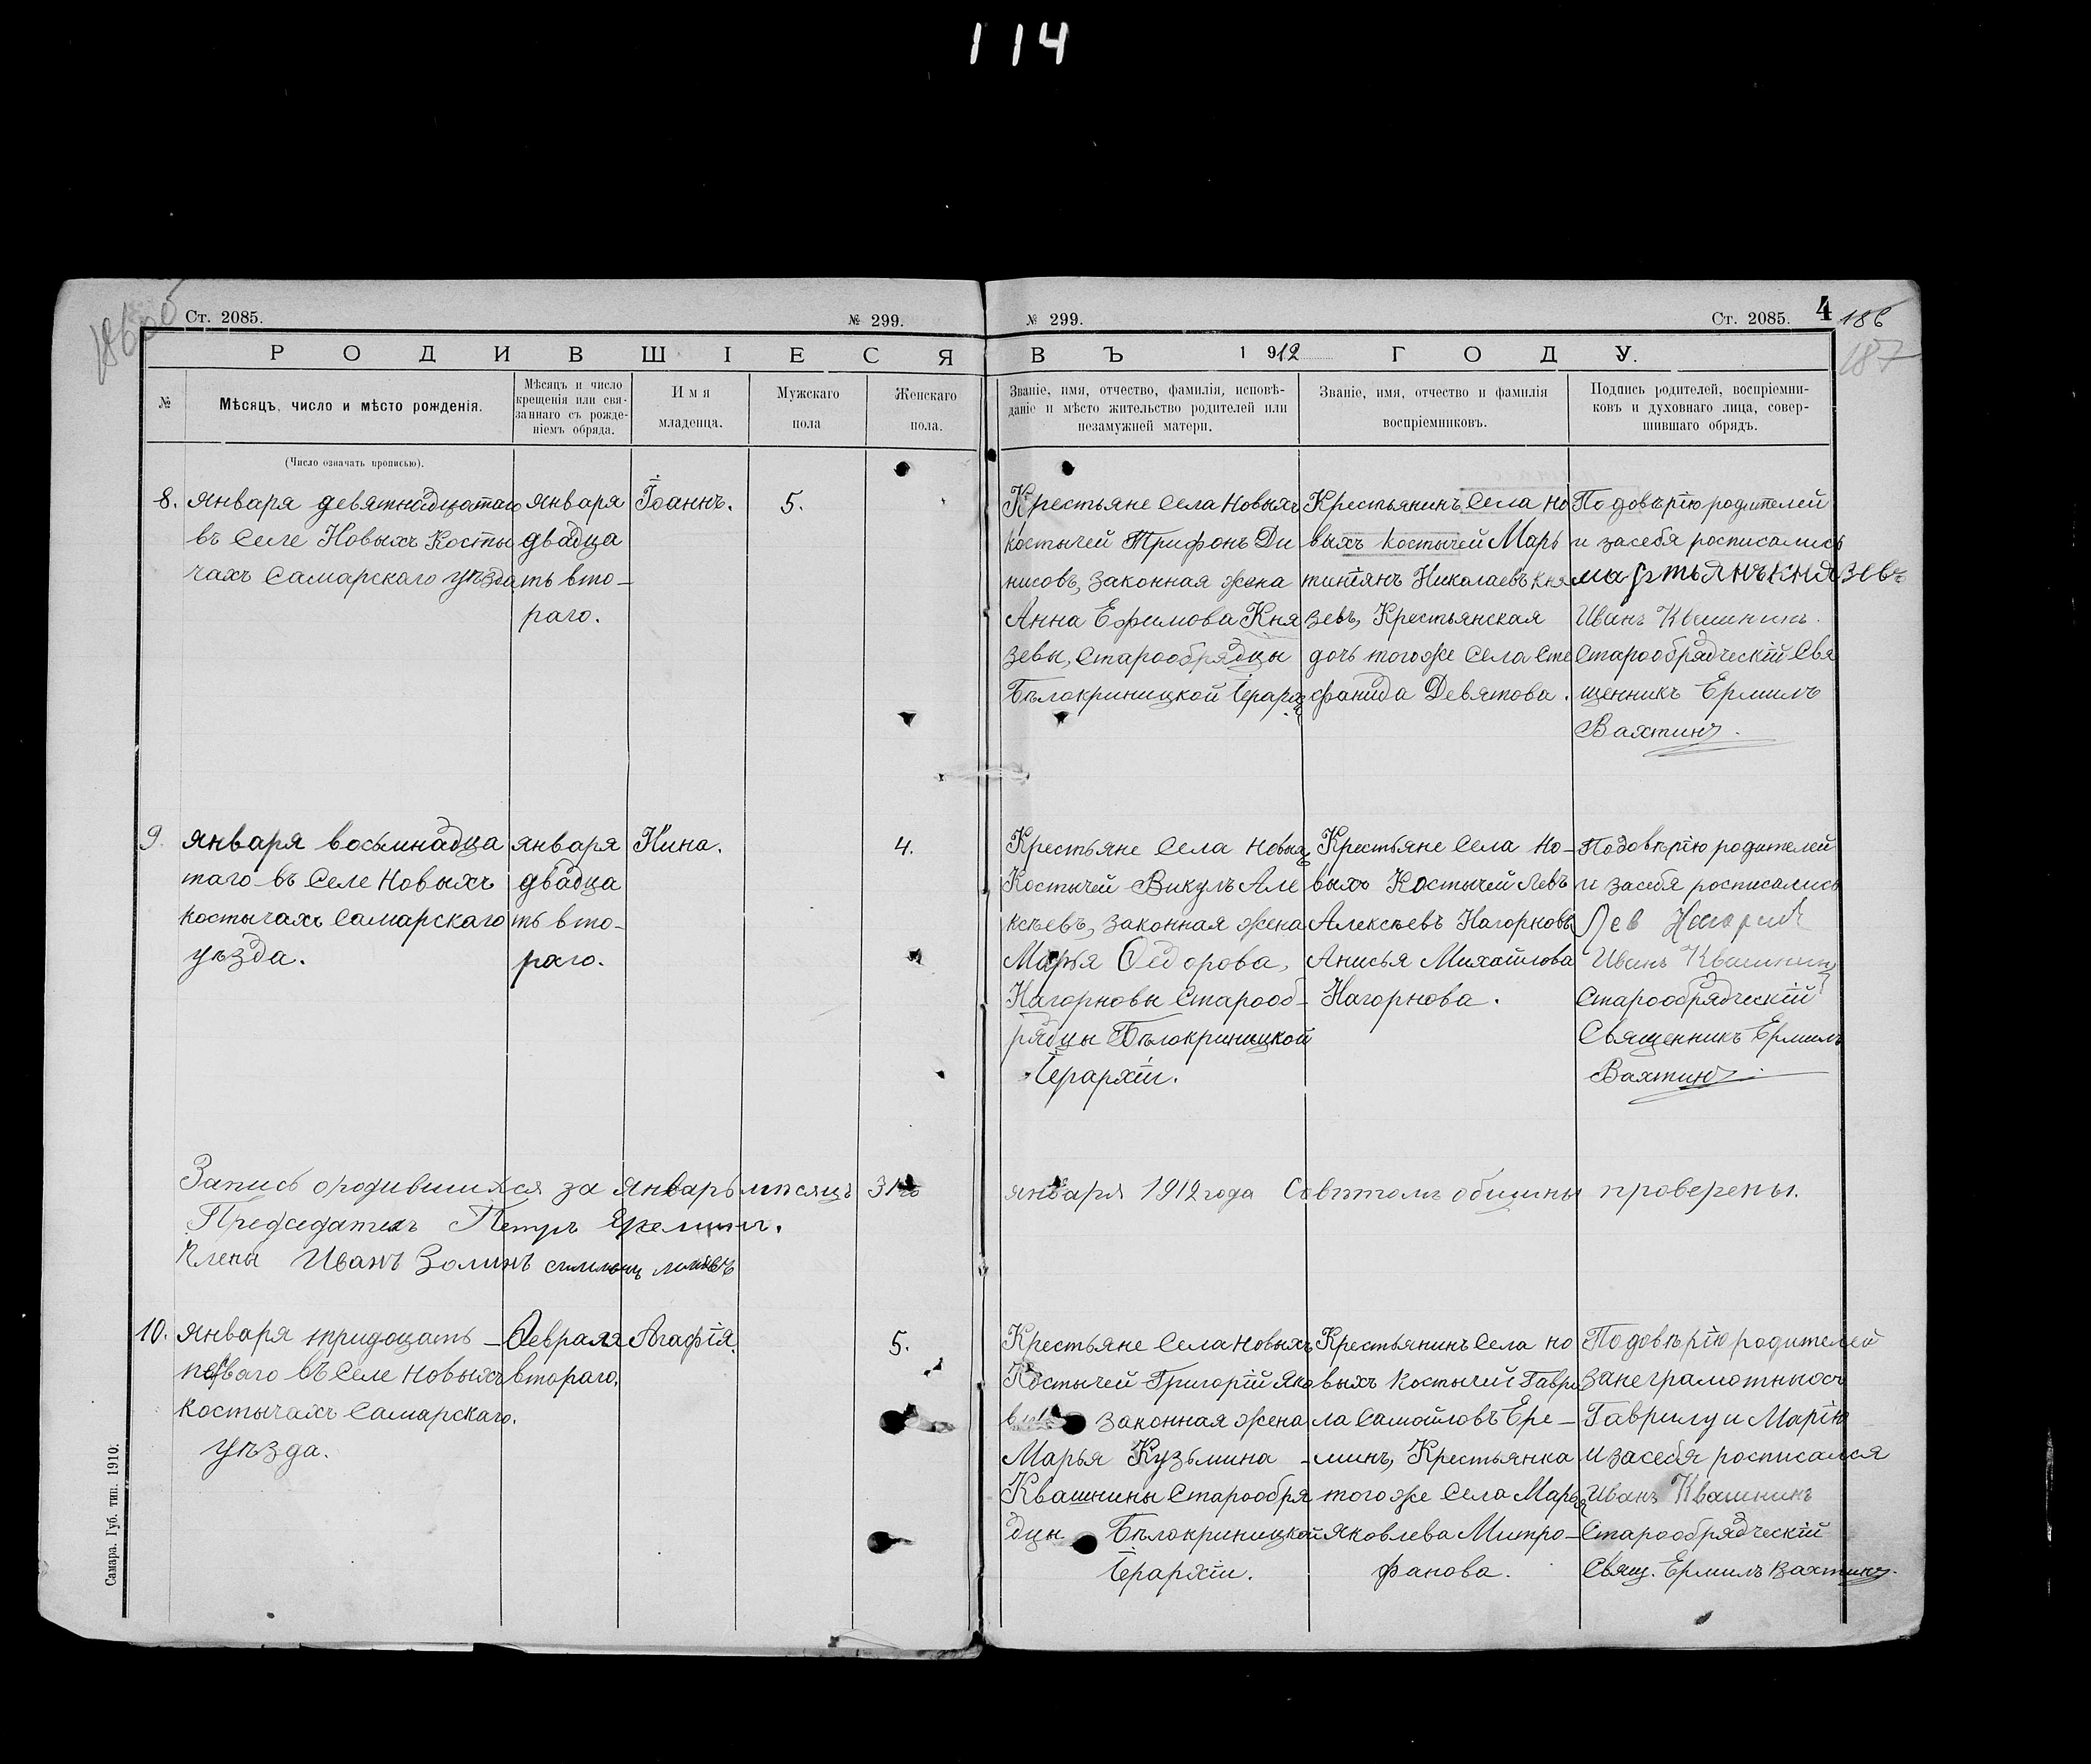 114
Ст. 2085.
№ 299.
№ 299.
Ст. 2085.
4
186
187
РОДИВШІЕСЯ
ВЪ 1912 ГОДУ.
№
Мѣсяцъ, число и мѣсто рожденія.
Мѣсяцъ и число
крещенія или свя-
заннаго съ рожде-
ніемъ обряда.
Имя
младенца.
Мужскаго
пола
Женскаго
пола.
Званіе, имя, отчество, фамилія, исповѣ-
даніе и мѣсто жительство родителей или
незамужней матери.
Званіе, имя, отчество и фамилія
воспріемниковъ.
Подпись родителей, воспріемни-
ковъ и духовнаго лица, совер-
шившаго обрядъ.
(Число означать прописью).
8.
Января девятнадцатаго
въ Селе Новыхъ Косты
чахъ Самарскаго уѣзда
января
двадца
ть вто-
раго.
Іоаннъ.
5.
Крестьяне Села Новыхъ
Костычей Трифонъ Ди
нисовъ, законная жена
Анна Ефимова Кня
зевы, Старообрядцы
Бѣлокриницкой Іерарх
Крестьянинъ Села Но
выхъ Костычей Марь
тиніянъ Николаевъ Кня
зевъ, Крестьянская
дочь тогоже Села Сте
фанида Девятова.
По довѣрію родителей
и засебя росписались
мартьянъ князевъ
Иванъ Квашнинъ.
Старообрядческій Свя
щенникъ Ермилъ
Вахтинъ.
9.
Января восьмнадца
таго въ Селе Новыхъ
костычахъ Самарскаго
уѣзда.
января
двадца
ть вто-
раго.
Нина.
4.
Крестьяне Села Новых
Костычей Викулъ Але
ксѣевъ, законная жена
Марья Ѳедорова,
Нагорновы Старооб-
рядцы Бѣлокриницкой
Іерархіи.
Крестьяне Села Но-
выхъ Костычей Левъ
Алексѣевъ Нагорновъ
Анисья Михайлова
Нагорнова.
Подовѣрію родителей
и засебя росписались
Лев
Иванъ Квашнинъ
Старообрядческій
Священникъ Ермилъ
Вахтинъ.
Запись ородившихся за Январь мѣсяцъ 31го января 1912 года Совѣтомъ общины проверены.
Председатель Петръ Еремин.
Члены Иванъ Золинъ
10.
Января тридцать-
перваго въ Селе Новыхъ
Костычахъ Самарскаго.
уѣзда.
Февраля
втораго.
Агафія.
5.
Крестьяне Села Новыхъ
Костычей Григорій Яко
законная жена
Марья Кузьмина
Квашнины Старообря
дцы Бѣлокриницкой
Іерархіи.
Крестьянинъ Села Но
выхъ Костычей Гаври
ла Самойловъ Ере-
минъ, Крестьянка
тогоже Села Марья
Яковлева Митро-
фанова.
Подовѣрію родителей
занеграмотныхъ
Гаврилу и Марію
и засебя росписался
Иванъ Квашнинъ
Старообрядческій
Свящ. Ермилъ Вахтинъ.
Самара. Губ. тип. 1910.